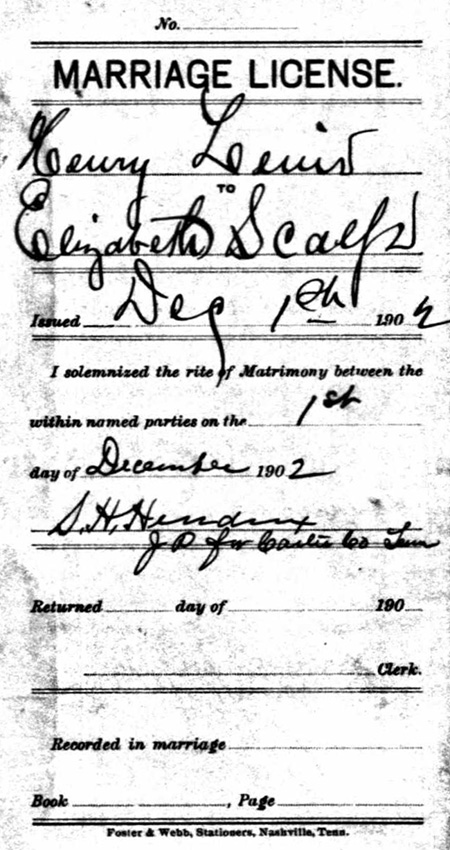 No.
MARRIAGE LICENSE.
Henry Lewis
TO
Elizabeth Scalf
Issued Dec 1st 1902
I solemnized the rite of Matrimony between the
within named parties on the 1st
day of December 1902
S. H. Hendrix
J P for Carter Co Tenn
Returned day of 190
Clerk.
Recorded in marriage
Book , Page
Foster & Webb, Stationers, Nashville, Tenn.